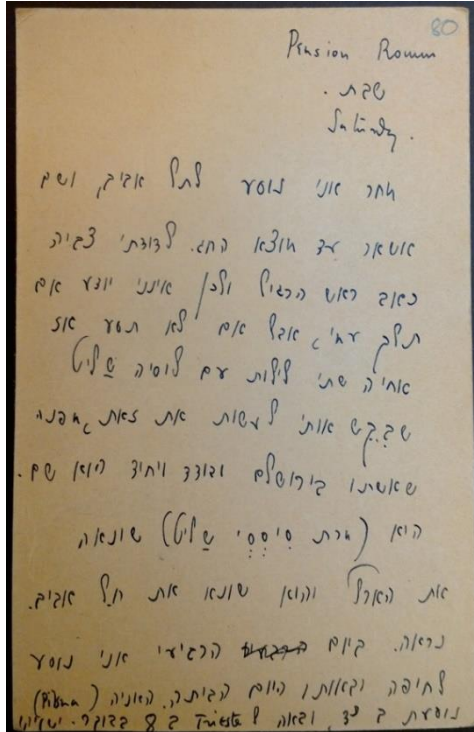 80
Pension Romm
שבת.
Saturday.
מחר אני נוסע לתל אביב, ושם
אשאר עד מוצא החג. לדודתי צביה
כאב ראש הרגיל ולכן אינני יודע אם
תלך עמי, אבל אם לא תסע אז
אחיה שתי לילות עם לוסיה שַליט
שבִקֵש אותי לעשות את זאת, מפנה
שאשתו בירושלם ובודד ויחיד הוא שם.
היא (מרת סיססי שַליט) שונאה
את הארץ והוא שונא את תל אביב.
נראה. ביום הרביעי אני נוסע
לחיפה ובאותו היום הביתה. האניה
נוסעת ב 3, ובאה ל Trieste ב 8 בבוקר.